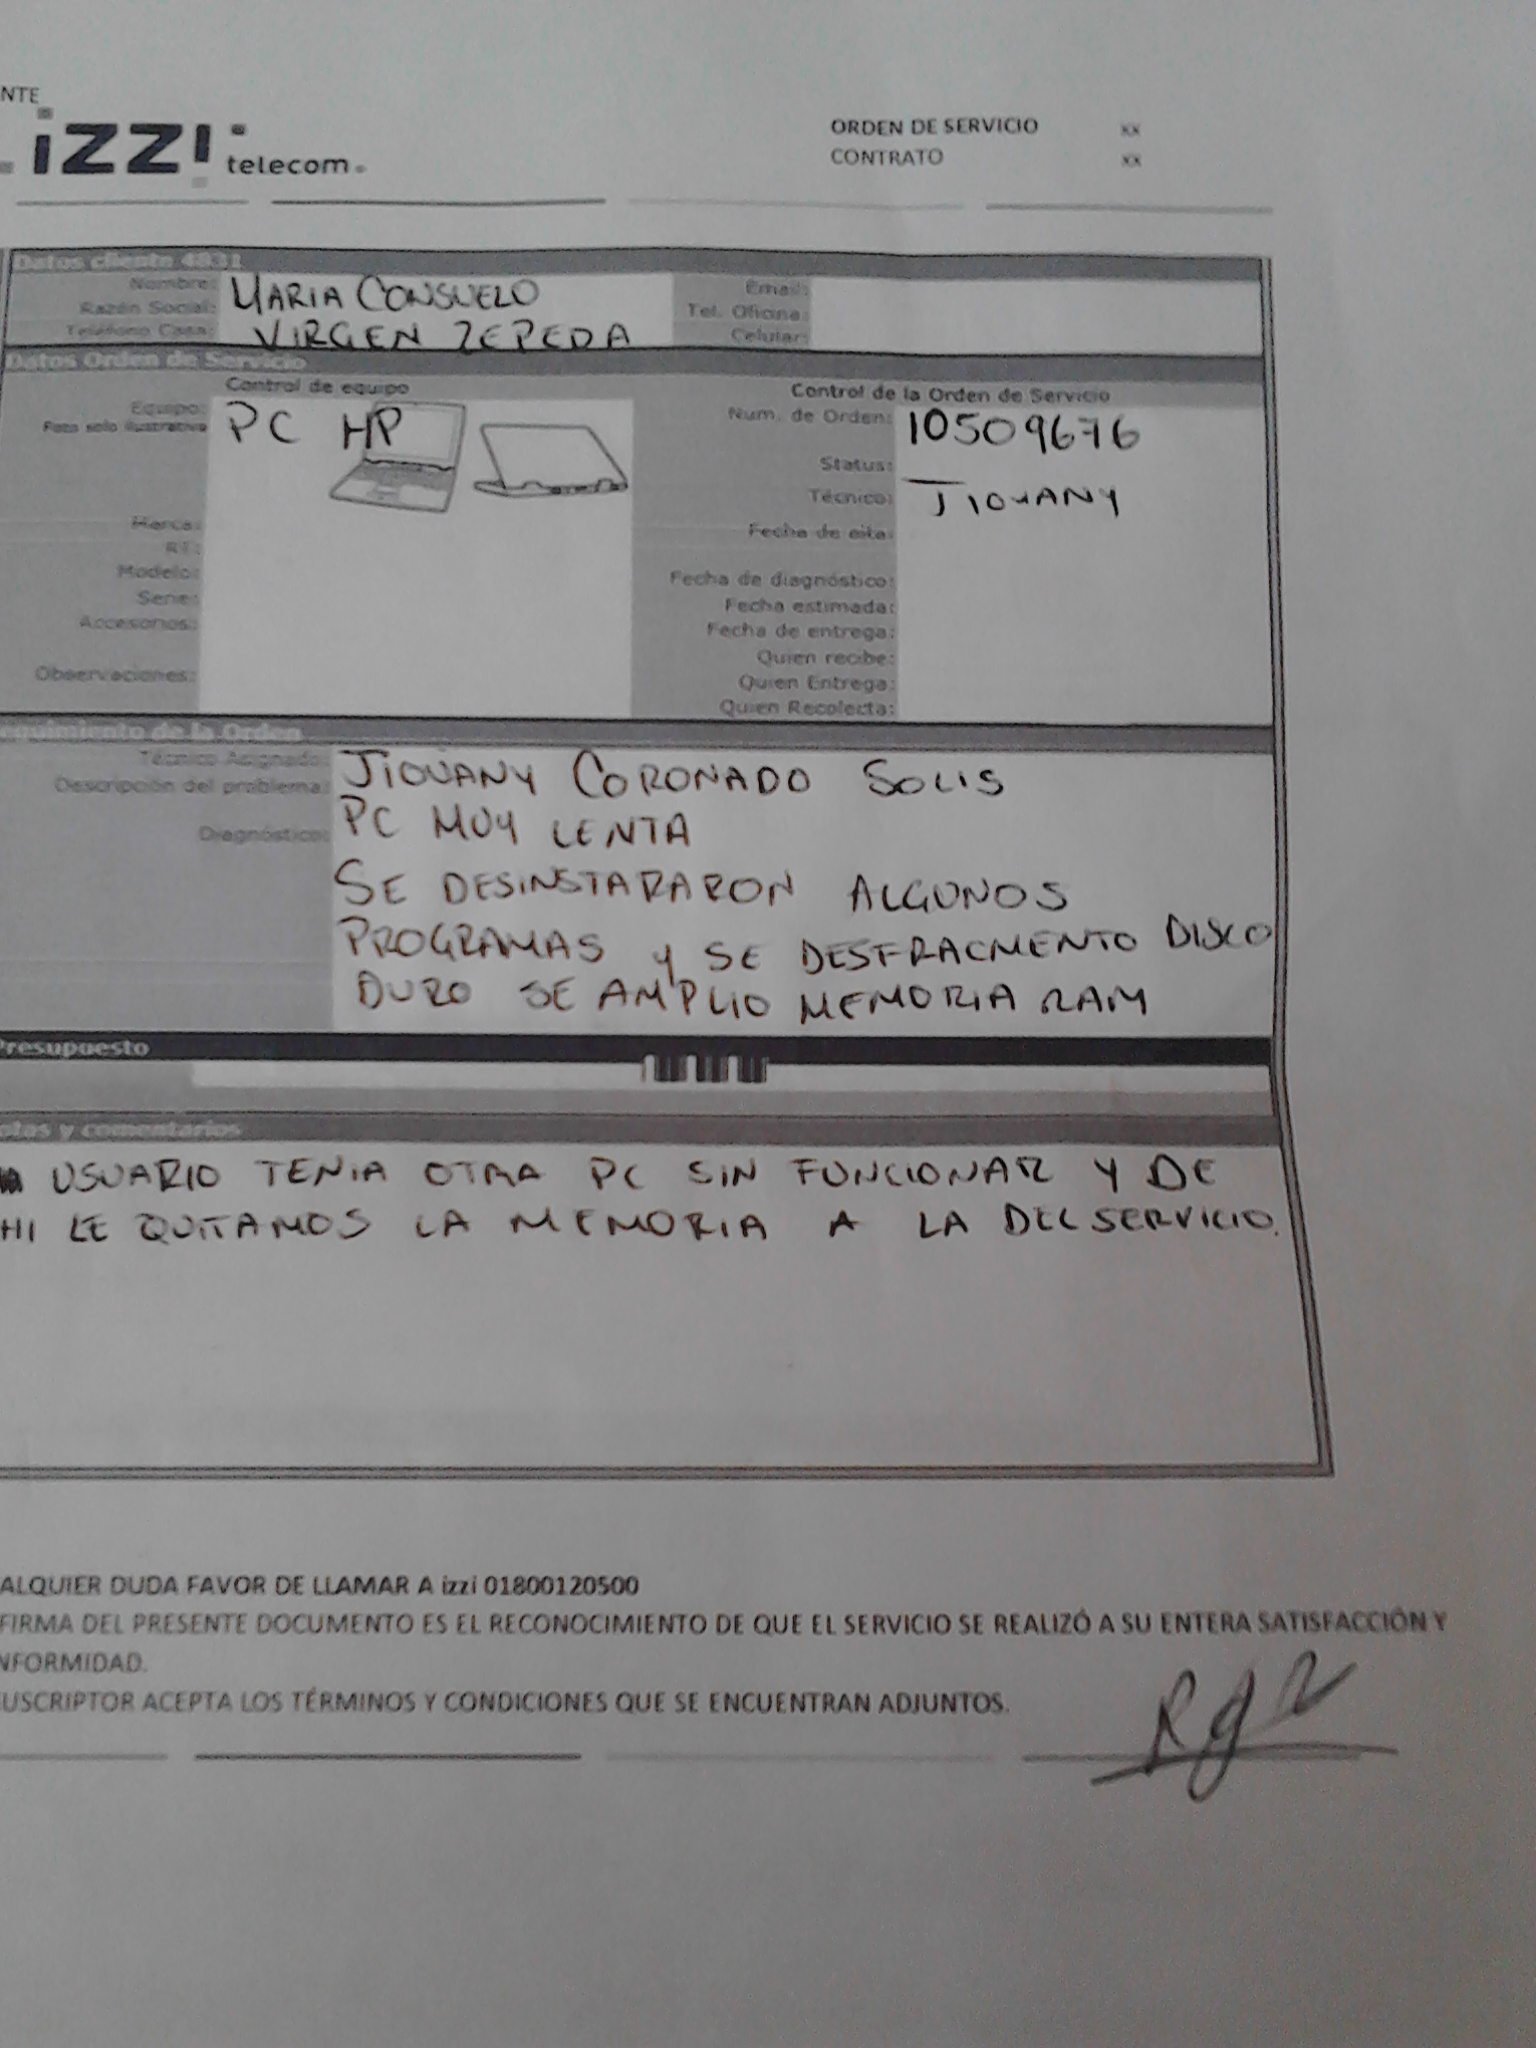 NTE
izzi telecom
ORDEN DE SERVICIO xx
CONTRATO xx
Datos cliente 4831
Nombre: MARIA CONSUELO
Razón Social:
Teléfono Casa: VIRGEN ZEPEDA
Email:
Tel. Oficina:
Celular:
Datos Orden de Servicio
Control de equipo
Equipo: PC HP
Foto solo ilustrativa
Marca:
RT:
Modelo:
Serie:
Accesorios:
Observaciones:
Control de la Orden de Servicio
Num. de Orden: 10509676
Status:
Técnico: JIOVANY
Fecha de cita:
Fecha de diagnóstico:
Fecha estimada:
Fecha de entrega:
Quien recibe:
Quien Entrega:
Quien Recolecta:
eguimiento de la Orden
Técnico Asignado: JIOVANY CORONADO SOLIS
Descripción del problema: PC MUY LENTA
Diagnóstico:
SE DESINSTARARON ALGUNOS
PROGRAMAS y SE DESFRACMENTO DISCO
DURO SE AMPLIO MEMORIA RAM
Presupuesto
otas y comentarios
USUARIO TENIA OTRA PC SIN FUNCIONAR Y DE
HI LE QUITAMOS LA MEMORIA A LA DEL SERVICIO.
ALQUIER DUDA FAVOR DE LLAMAR A izzi 01800120500
FIRMA DEL PRESENTE DOCUMENTO ES EL RECONOCIMIENTO DE QUE EL SERVICIO SE REALIZÓ A SU ENTERA SATISFACCIÓN Y
NFORMIDAD.
USCRIPTOR ACEPTA LOS TÉRMINOS Y CONDICIONES QUE SE ENCUENTRAN ADJUNTOS.